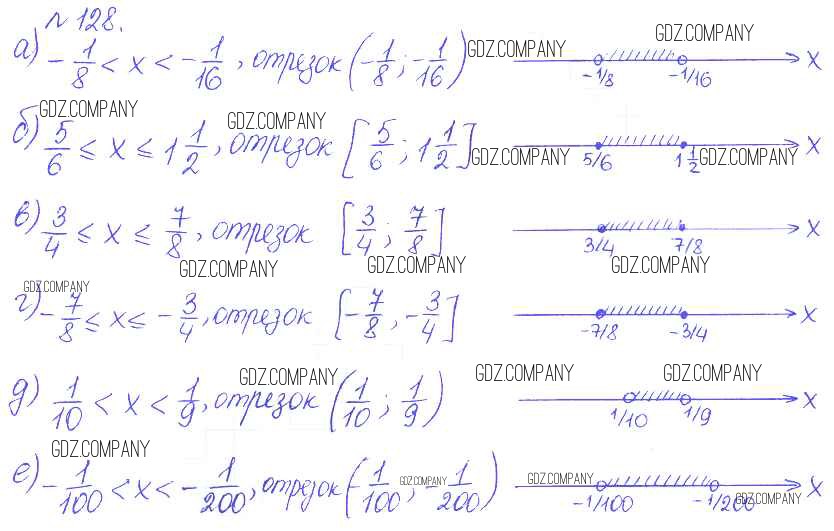 № 128.
а) -1/8 < x < -1/16, отрезок (-1/8; -1/16) GDZ.COMPANY GDZ.COMPANY -1/8 -1/16 x
б) 5/6 ≤ x ≤ 1 1/2, отрезок [5/6; 1 1/2] GDZ.COMPANY GDZ.COMPANY GDZ.COMPANY GDZ.COMPANY 5/6 1 1/2 x
в) 3/4 ≤ x ≤ 7/8, отрезок [3/4; 7/8] 3/4 7/8 x
GDZ.COMPANY GDZ.COMPANY GDZ.COMPANY GDZ.COMPANY
г) -7/8 ≤ x ≤ -3/4, отрезок [-7/8, -3/4] -7/8 -3/4 x
д) 1/10 < x < 1/9, отрезок (1/10; 1/9) GDZ.COMPANY GDZ.COMPANY GDZ.COMPANY 1/10 1/9 x
GDZ.COMPANY
е) -1/100 < x < -1/200, отрезок (-1/100; -1/200) GDZ.COMPANY GDZ.COMPANY GDZ.COMPANY -1/100 -1/200 x